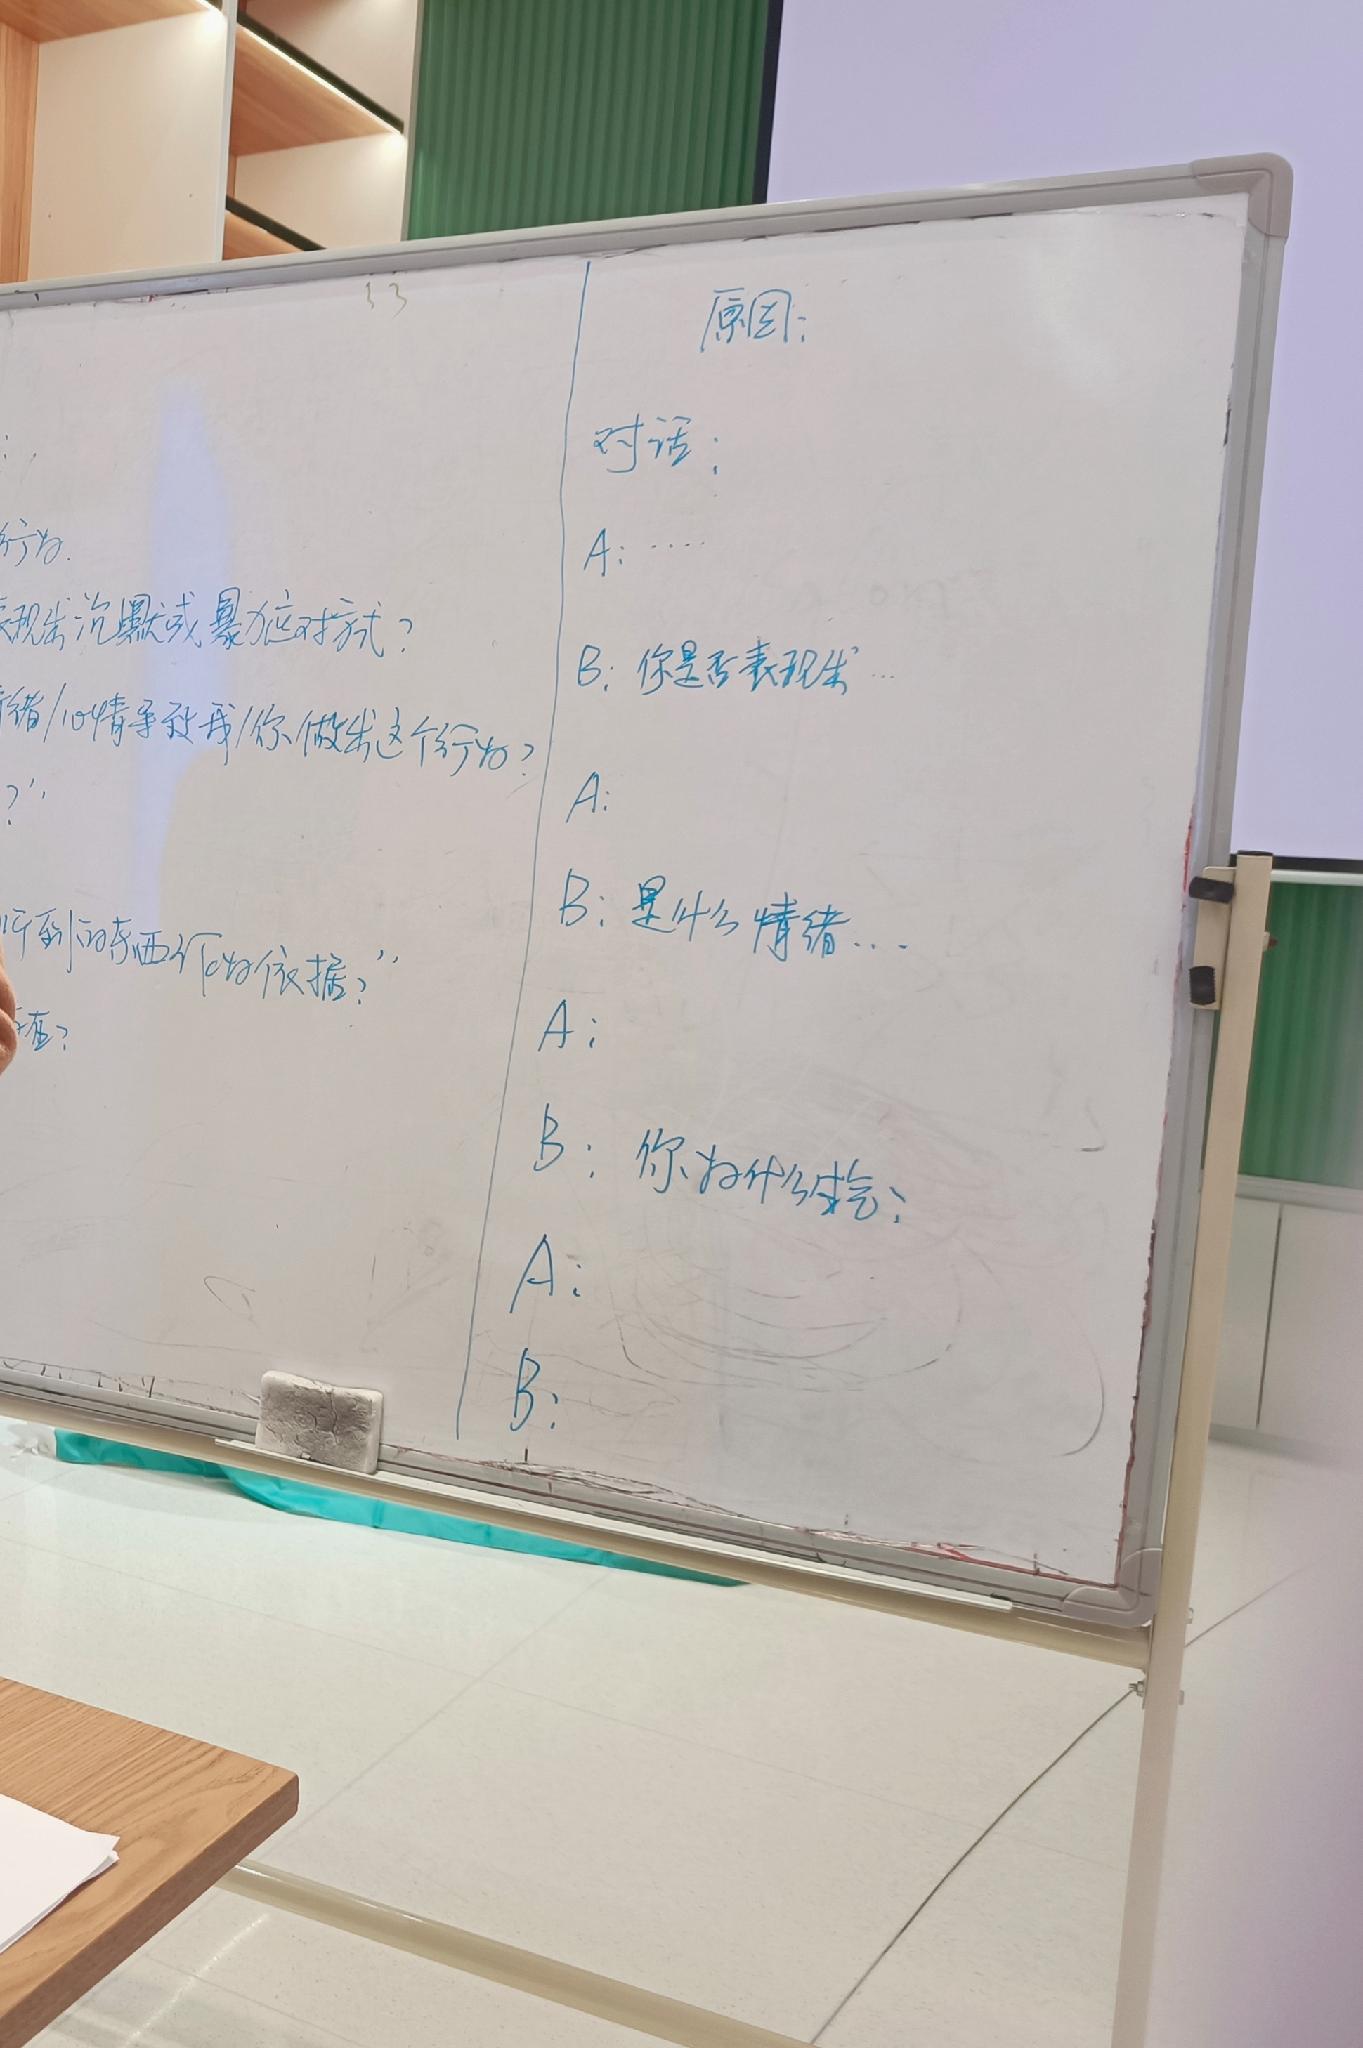 行为.
表现出沉默或暴力应对方式?
情绪/心情导致我/你做出这个行为?
?"
听到的东西作为依据?"
查?
原因:
对话:
A: ....
B: 你是否表现出...
A:
B: 是什么情绪....
A:
B: 你为什么生气?
A:
B: